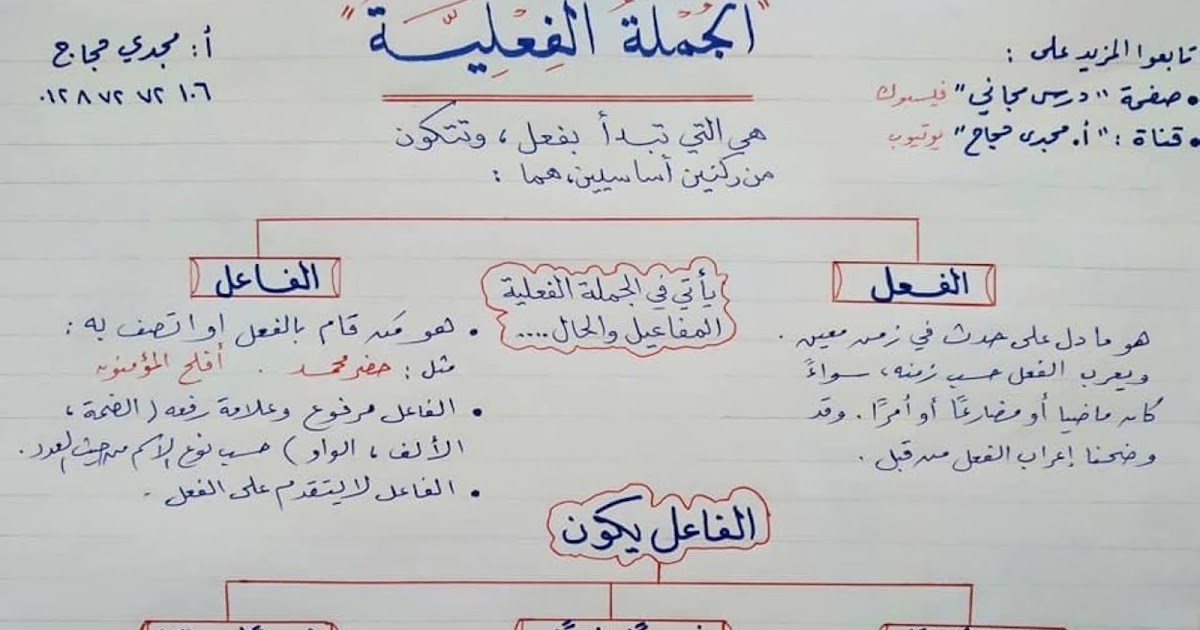 "الجُمْلَةُ الفِعْلِيَّـة"
تابعوا المزيد على :
• صفحة "درس مجاني" فيسبوك
• قناة : "أ. مجدى حجاج" يوتيوب
أ: مجدي حجاج
٠١٢٨ ٧٢ ٧٢ ١٠٦
هي التي تبدأ بفعل ، وتتكون
من ركنين أساسيين، هما :
الفعل
هو ما دل على حدث في زمن معين .
ويعرب الفعل حسب زمنه، سواءً
كان ماضيا أو مضارعًا أو أمرًا . وقد
وضحنا إعراب الفعل من قبل .
يأتي في الجملة الفعلية
المفاعيل والحال ....
الفاعل
• هو مَن قام بالفعل او اتصف به :
مثل : حضر محمد . أفلح المؤمنون
• الفاعل مرفوع وعلامة رفعه ( الضمة ،
الألف ، الواو ) حسب نوع الاسم من حيث العدد .
• الفاعل لا يتقدم على الفعل .
الفاعل يكون